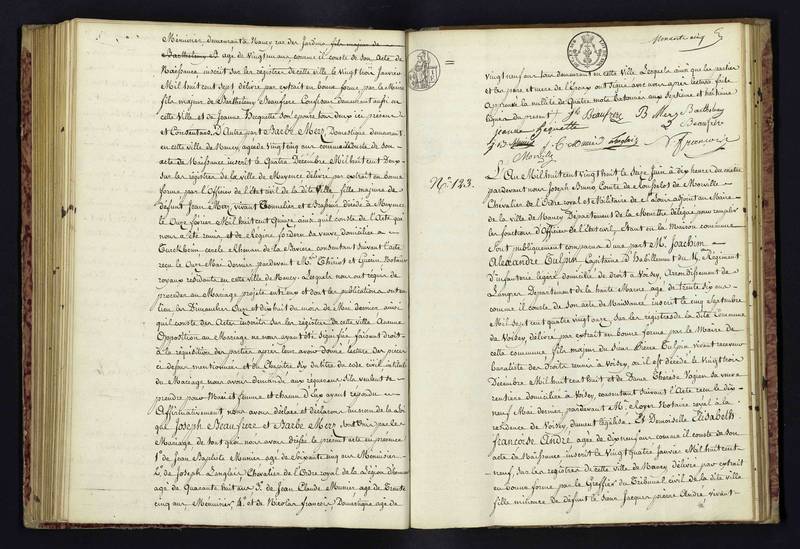 Menuisier, demeurant à Nancy, rue des Jardins fils majeur de
Barthelemy B agé de Vingt neuf ans, comme il conste de son Acte de
Naissance inscrit sur les régistres de cette ville, le Vingt trois Janvier
Mil huit cent sept délivré par extrait en bonne forme par le Maire
fils majeur de Barthelemy Beaufrere Cordonnier demeurant aussi en
cette Ville et de Jeanne Hequette son épouse tous deux ici présens
et Consentans, d'Autre part Barbe Merz, Domestique demeurant
en cette ville de Nancy agée de Vingt cinq ans comme il conste de son
acte de Naissance inscrit le Quatre Décembre Mil huit cent Deux
sur les régistres de la ville de Mayence délivré par extrait en bonne
forme par l'Officier de l'Etat civil de la dite Ville, fille majeure de
défunt Jean Merz, vivant Tonnelier et décédé à Mayence
le Onze février Mil huit cent Quinze ainsi qu'il conste de l'acte qui
nous a été remis et de Régine sa veuve domiciliée à
Turckheim cercle Rhenan de la Baviere consentant suivant l'acte
reçu le Onze Mai dernier pardevant Mes Thiriet et Guerin Notaires
royaux résidants en cette ville de Nancy. Lesquels nous ont requis de
procéder au Mariage projeté entr'eux et dont les publications ont eu
lieu les Dimanches Onze et dix huit du mois de Mai dernier ainsi
qu'il conste des Actes inscrits sur les régistres de cette ville. Aucune
Opposition au Mariage ne nous ayant été signifiée faisant droit
à la réquisition des parties après leur avoir donné lecture des pièces
ci dessus mentionnées et du Chapitre Six du titre du code civil intitulé
du Mariage nous avons demandé aux requérans s'ils veulent se
prendre pour Mari et femme et chacun d'eux ayant répondu
Affirmativement nous avons déclaré et déclarons au nom de la loi
que Joseph Beaufrere et Barbe Merz, sont unis par le
Mariage, de tout quoi nous avons dressé le présent acte en présence
1° de Jean Baptiste Munier agé de Soixante cinq ans Menuisier
2° de Joseph Langlais Chevalier de l'Ordre royal de la Légion d'honneur
agé de Quarante huit ans 3° de Jean Claude Munier agé de Trente
cinq ans Menuisier 4° et de Nicolas francois Domestique agé de
Nonante cinq
vingt neuf ans tous demeurant en cette Ville Lesquels ainsi que les parties
et les pere et mere de l'époux ont signé avec nous après lecture faite
Approuvé la nullité de Quatre mots bâtonnés aux sixième et treizième
lignes du présent Jh Beaufrere B Merz Barthelemy
jeanne hequette Beaufrere
J B Munier J. C Munier Langlais
Monville N francois
N° 123.
L'An Mil huit cent vingt huit le Onze Juin à dix heures du matin
pardevant nous Joseph Bruno Comte de Monville
Chevalier de l'Ordre royal et Militaire de St Louis adjoint au Maire
de la ville de Nancy Département de la Meurthe délégué pour remplir
les fonctions d'Officier de l'Etat civil, étant en la Maison commune
Sont publiquement comparus d'une part Mr Joachim
Alexandre Culpin Capitaine d'habillement du Régiment
d'infanterie légère domicilié de droit à Voisey, Arrondissement de
Langres Département de la haute Marne agé de trente six ans
comme il conste de son acte de Naissance inscrit le cinq Septembre
Mil sept cent quatre vingt onze, sur les régistres de la dite Commune
de Voisey, délivré par extrait en bonne forme par le Maire de
cette commune fils majeur du Sieur Pierre Culpin vivant receveur
buraliste des Droits réunis à Voisey, où il est décédé le Vingt trois
Décembre Mil huit cent huit et de Dame Thérèse Vagier sa veuve
rentiere domiciliée à Voisey, consentant suivant l'Acte reçu le dix
neuf Mai dernier, pardevant Me Royer Notaire royal à la
résidence de Voisey, dument légalisé. Et Demoiselle Elisabeth
francoise André, agée de dix neuf ans comme il conste de son
acte de Naissance inscrit le Vingt quatre janvier Mil huit cent
neuf, sur les régistres de cette ville de Nancy délivré par extrait
en bonne forme par le Greffier du Tribunal civil de la dite ville
fille mineure de défunt le Sieur Jacques pierre André vivant